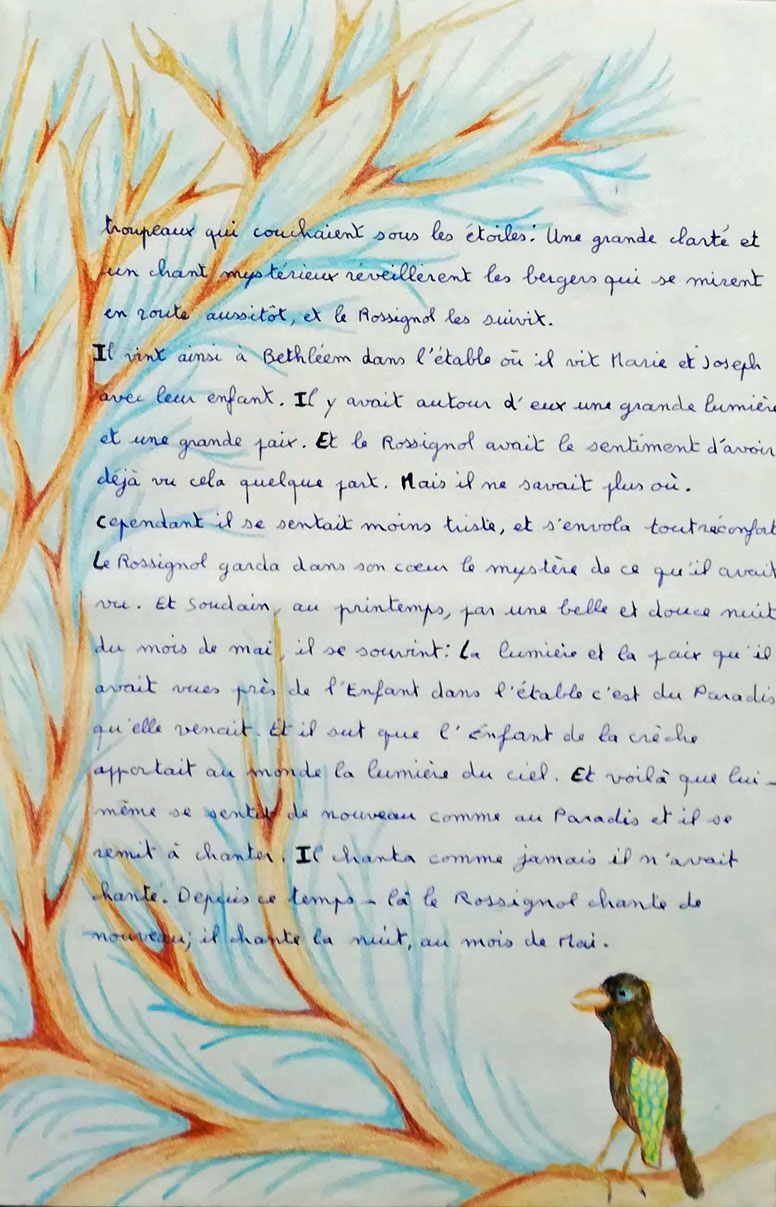 troupeaux qui couchaient sous les étoiles: Une grande clarté et
un chant mystérieux réveillèrent les bergers qui se mirent
en route aussitôt, et le Rossignol les suivit.
Il vint ainsi à Bethléem dans l'étable où il vit Marie et Joseph
avec leur enfant. Il y avait autour d'eux une grande lumière
et une grande paix. Et le Rossignol avait le sentiment d'avoir
déjà vu cela quelque part. Mais il ne savait plus où.
Cependant il se sentait moins triste, et s'envola tout réconfort
Le Rossignol garda dans son coeur le mystère de ce qu'il avait
vu. Et Soudain, au printemps, par une belle et douce nuit
du mois de mai, il se souvint: La lumière et la paix qu'il
avait vues près de l'Enfant dans l'étable c'est du Paradis
qu'elle venait. Et il sut que l'Enfant de la crèche
apportait au monde la lumière du ciel. Et voilà que lui-
même se sentit de nouveau comme au Paradis et il se
remit à chanter. Il chanta comme jamais il n'avait
chante. Depuis ce temps-là le Rossignol chante de
nouveau; il chante la nuit, au mois de Mai.